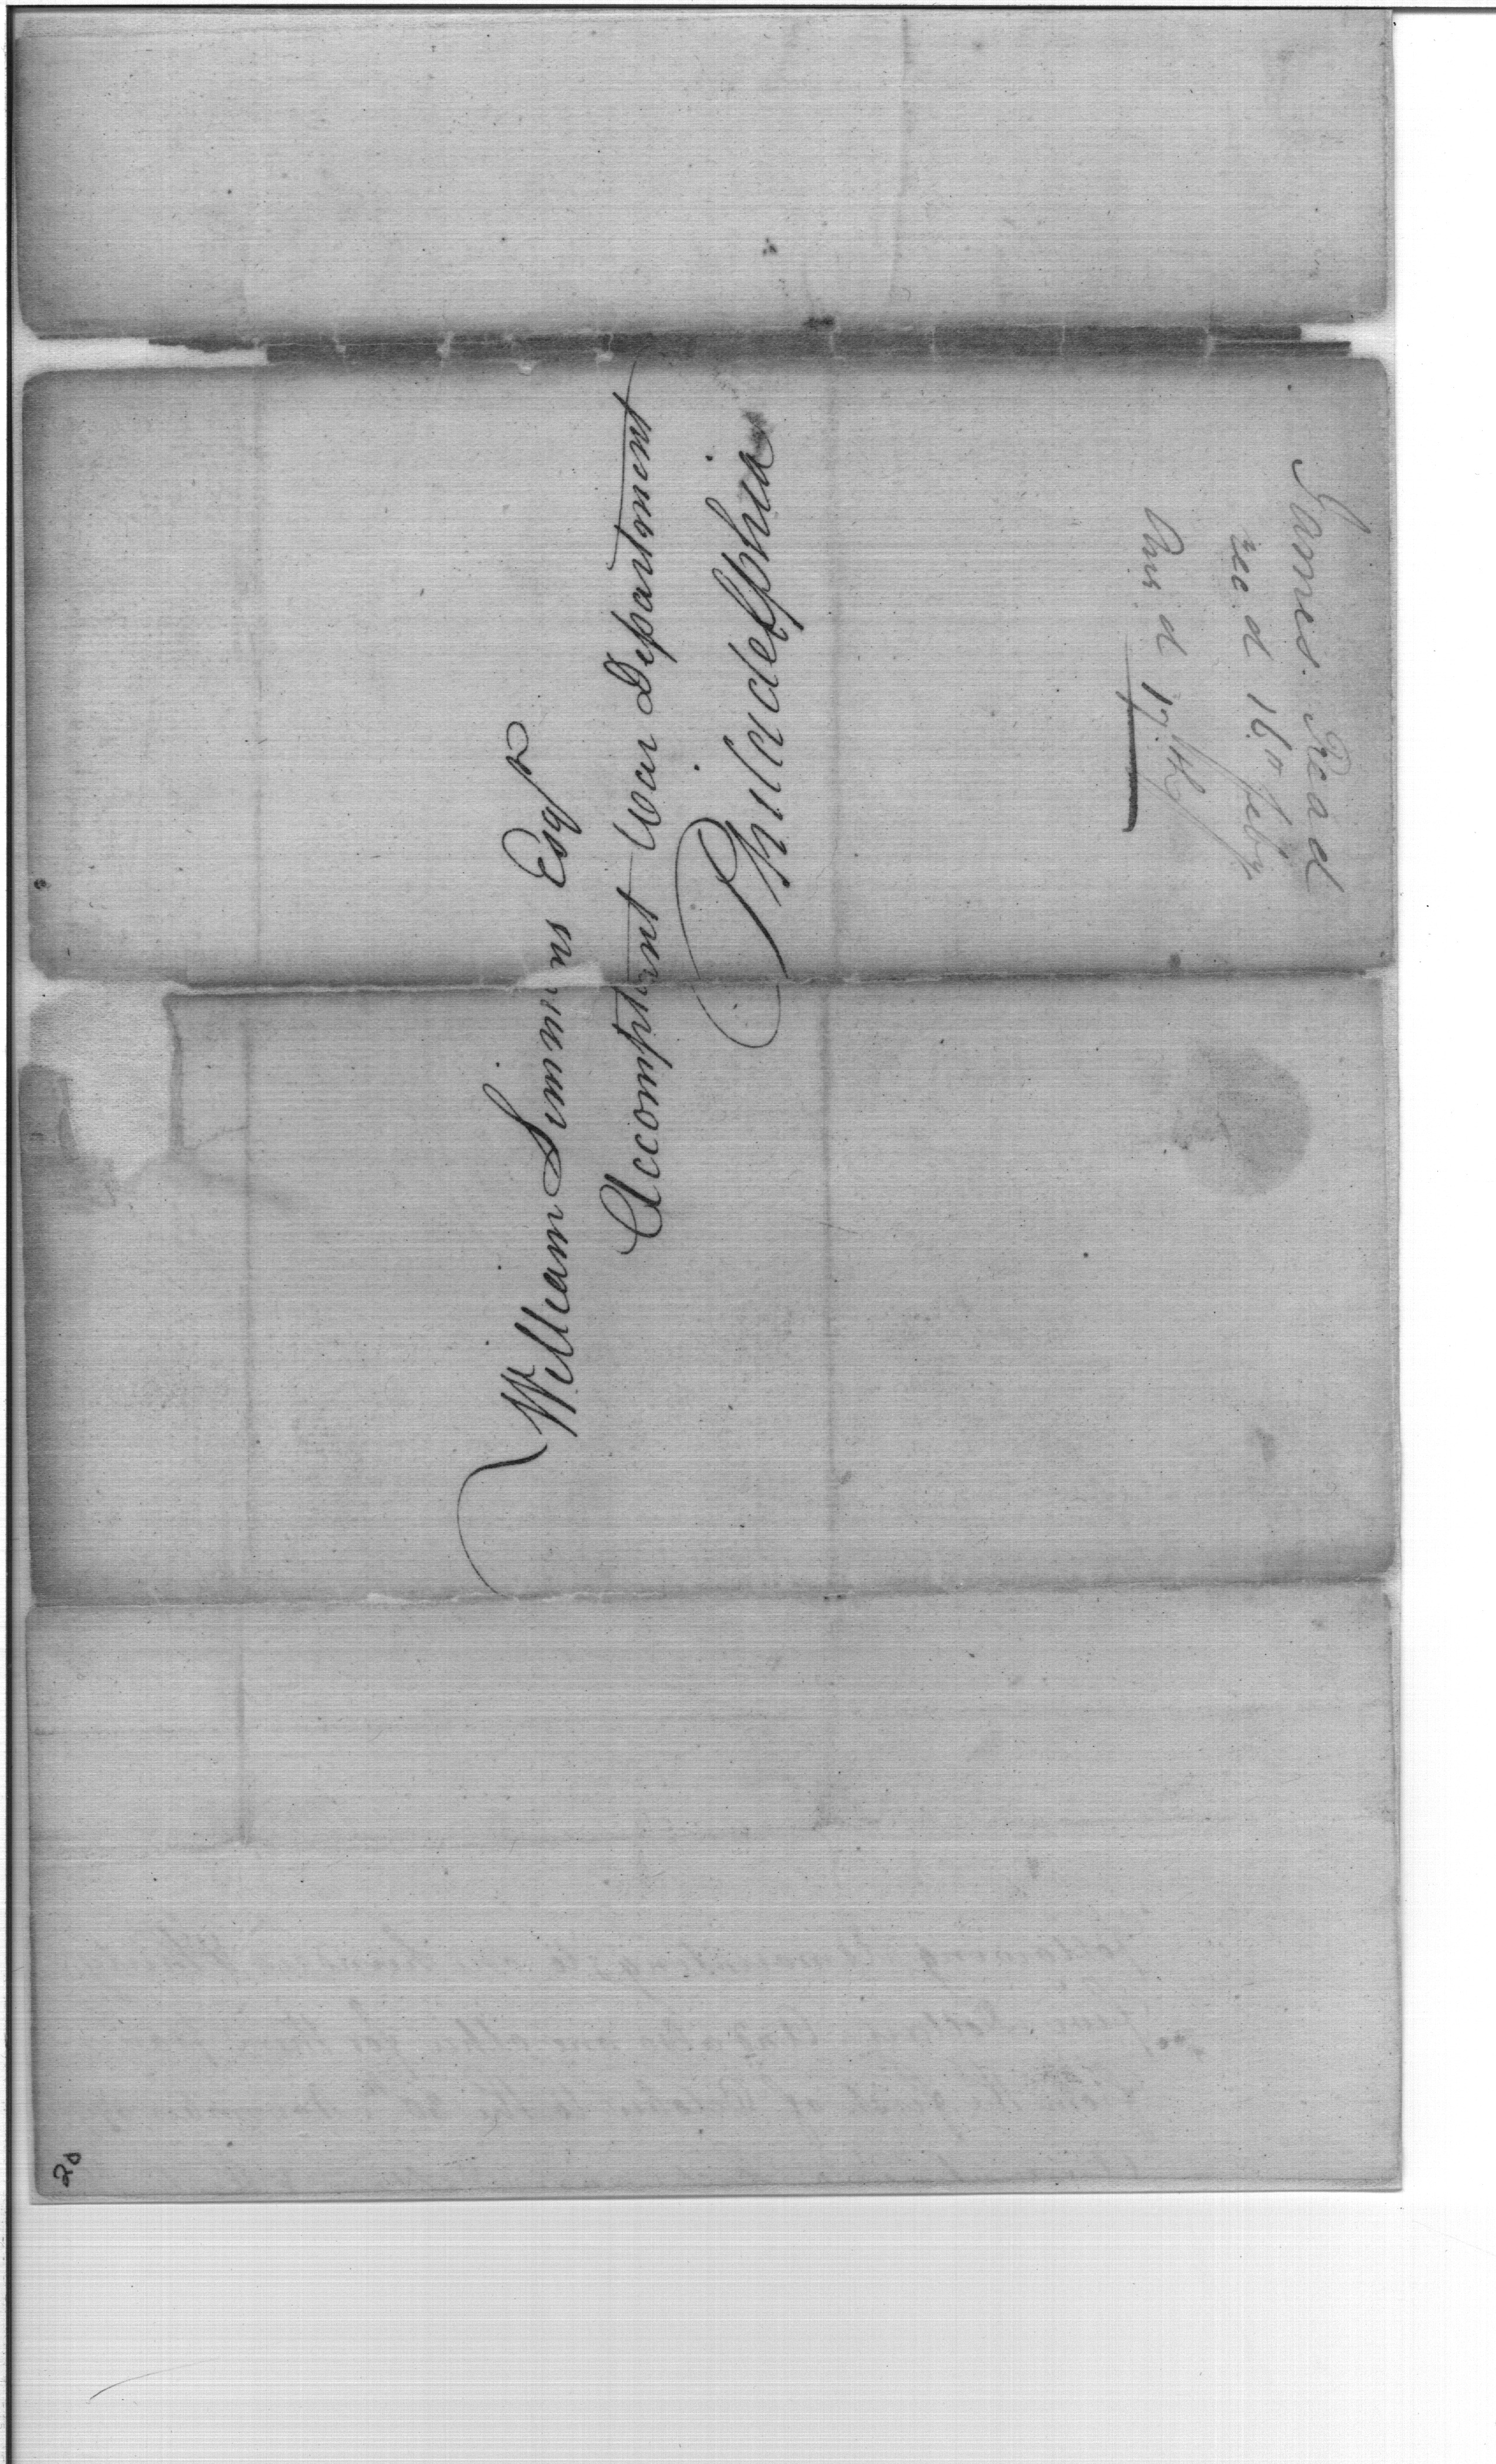 William Simmons Esqr
Accomptant War Department
Philadelphia
James Read
rec.d 16th feby.
Ans.d 17.th
20